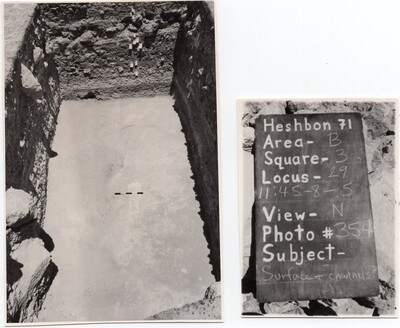 Heshbon 71
Area- B
Square- 3
Locus- 29
11:45-8-5
View- N
Photo #354
Subject-
Surface + channels?